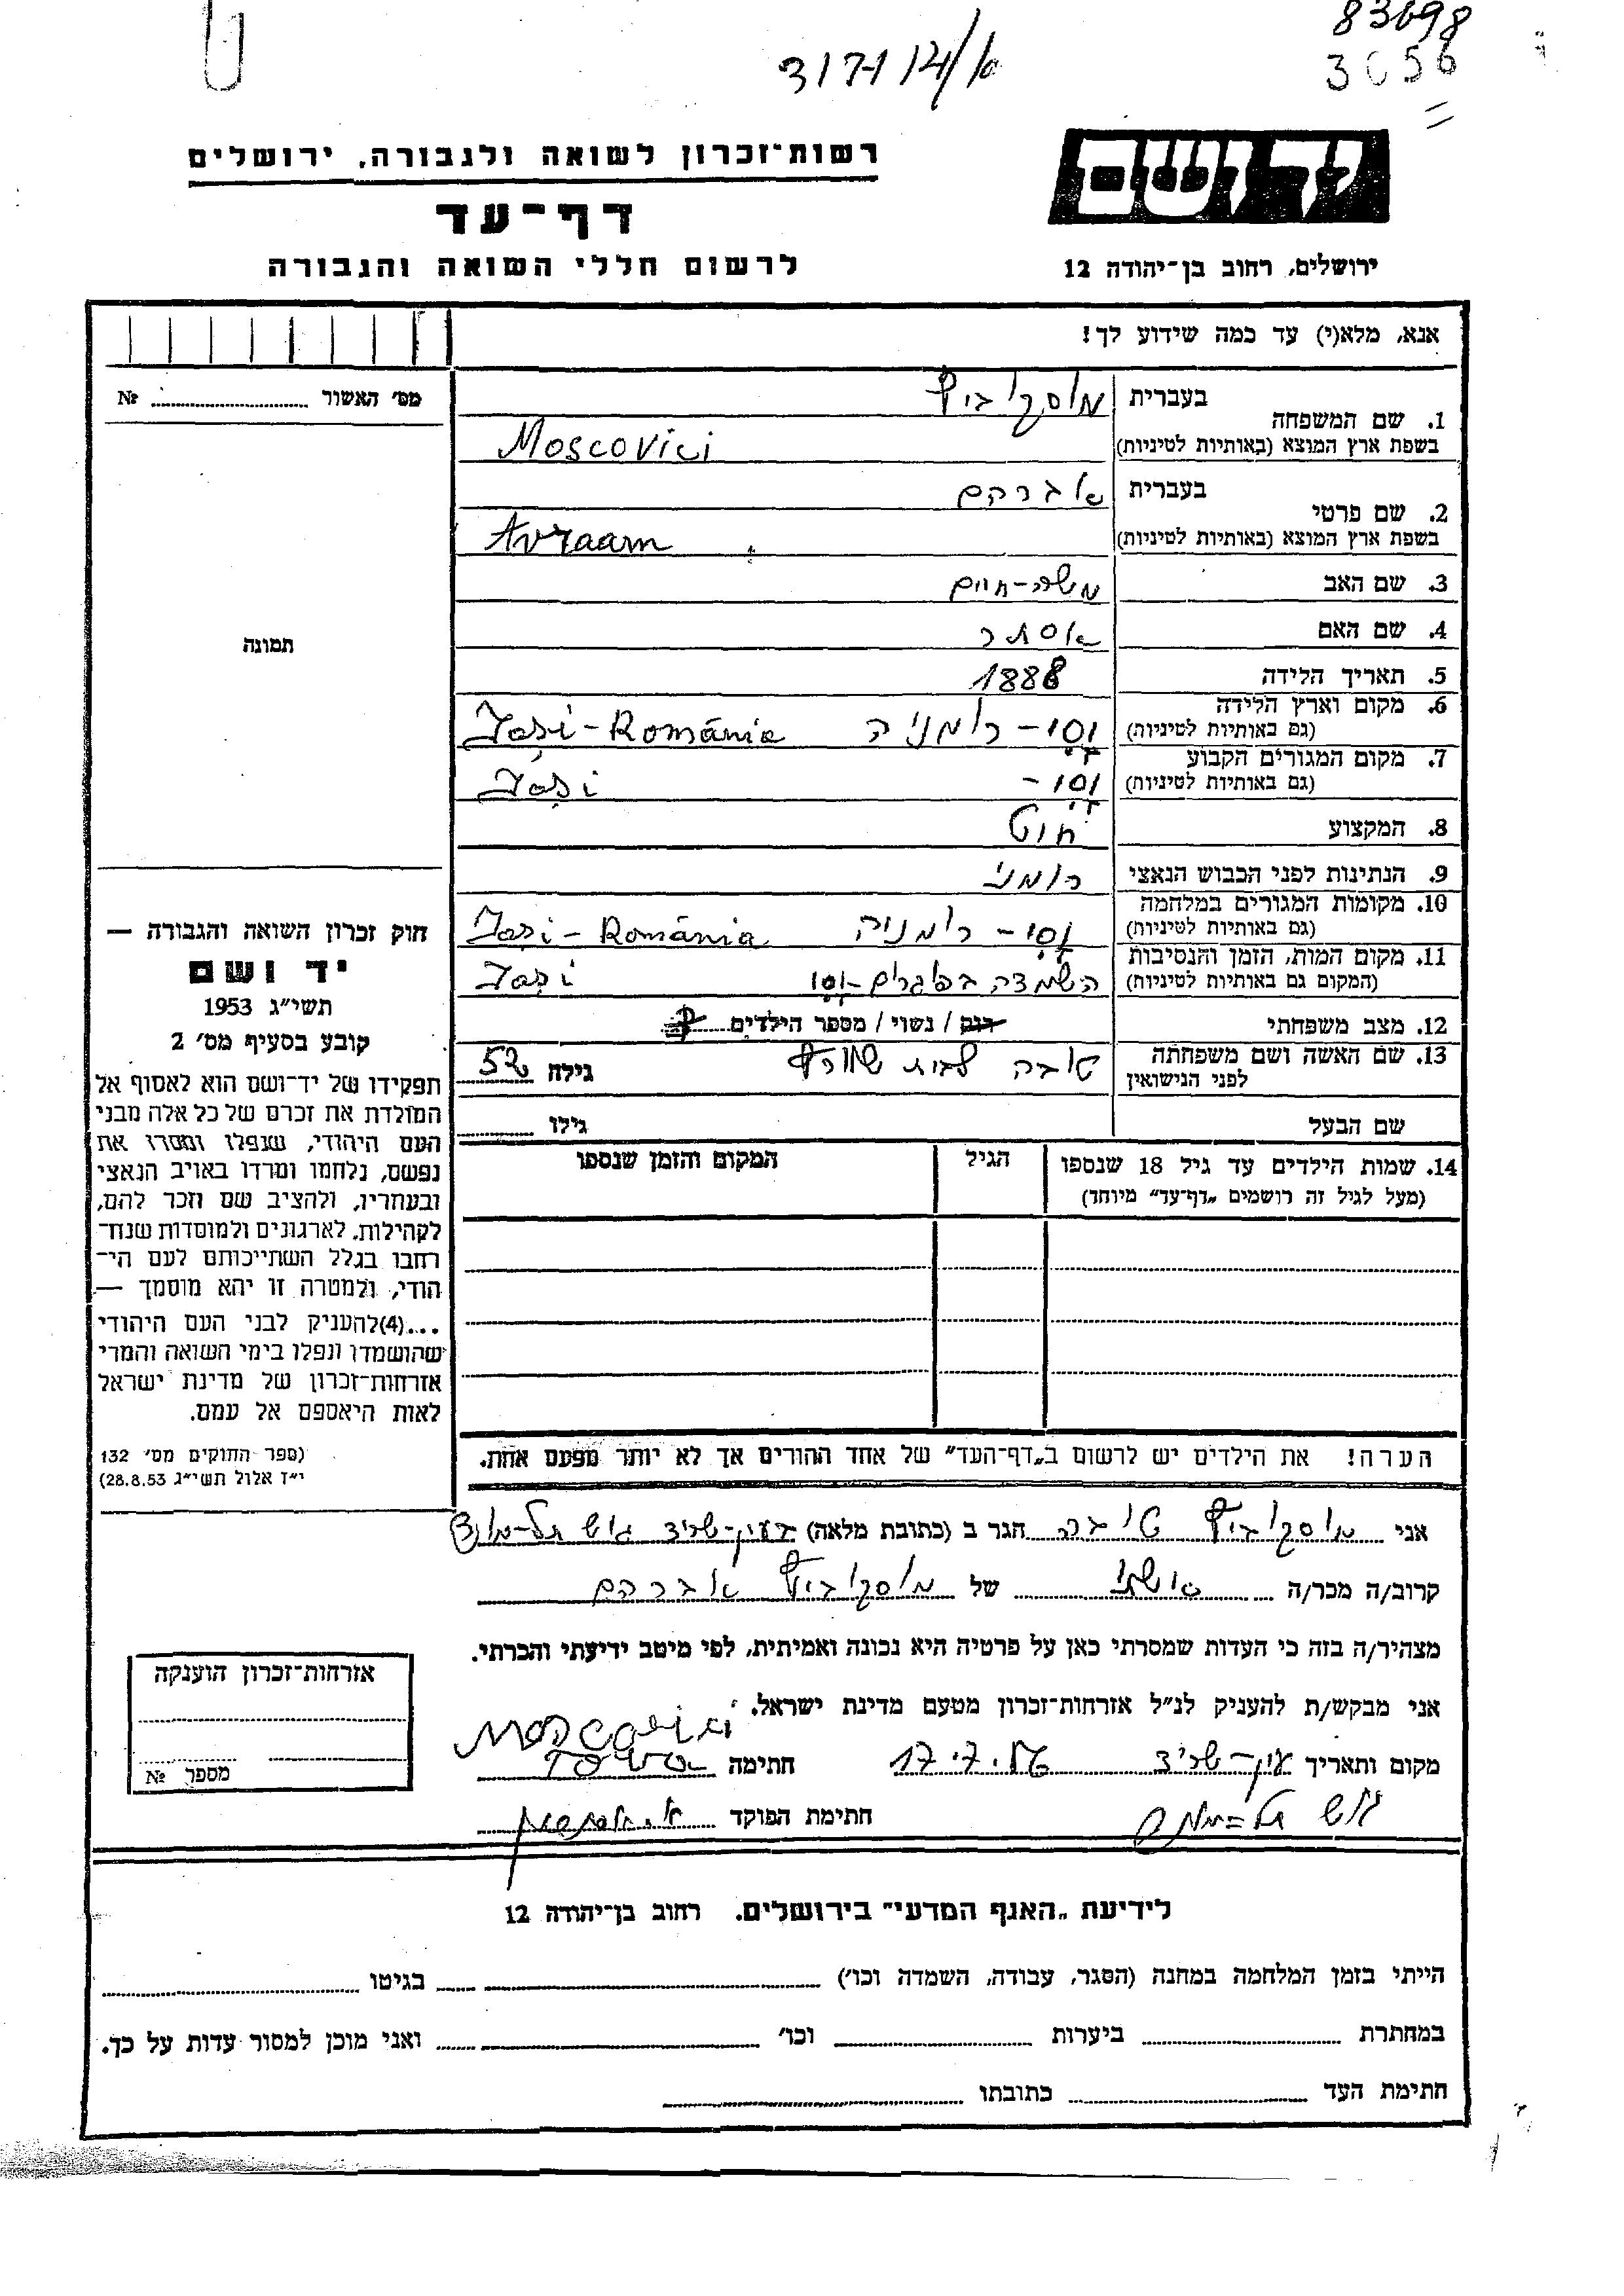 83698
3056
3171 14/א
רשות-זכרון לשואה ולגבורה, ירושלים
דף-עד
לרשום חללי השואה והגבורה
יד ושם
ירושלים, רחוב בן-יהודה 12
אנא, מלא(י) עד כמה שידוע לך!
מס' האשור ........ №
תמונה
1. שם המשפחה בעברית מוסקוביץ
בשפת ארץ המוצא (באותיות לטיניות) Moscovici
2. שם פרטי בעברית אברהם
בשפת ארץ המוצא (באותיות לטיניות) Avraam
3. שם האב משה-חיים
4. שם האם אסתר
5. תאריך הלידה 1888
6. מקום וארץ הלידה (גם באותיות לטיניות) יסי - רומניה Iași - România
7. מקום המגורים הקבוע (גם באותיות לטיניות) יסי - Iași
8. המקצוע
9. הנתינות לפני הכבוש הנאצי רומני
10. מקומות המגורים במלחמה (גם באותיות לטיניות) יסי - רומניה Iași - România
11. מקום המות, הזמן והנסיבות (המקום גם באותיות לטיניות) השמדה בפוגרום-יסי Iași
12. מצב משפחתי רווק / נשוי / מספר הילדים
13. שם האשה ושם משפחתה לפני הנישואין טובה לבית שוורץ גילה 52
שם הבעל גילו ........
14. שמות הילדים עד גיל 18 שנספו הגיל המקום והזמן שנספו
(מעל לגיל זה רושמים „דף-עד" מיוחד)
הערה! את הילדים יש לרשום ב„דף-העד" של אחד ההורים אך לא יותר מפעם אחת.
חוק זכרון השואה והגבורה —
יד ושם
תשי״ג 1953
קובע בסעיף מס' 2
תפקידו של יד-ושם הוא לאסוף אל
המולדת את זכרם של כל אלה מבני
העם היהודי, שנפלו ומסרו את
נפשם, נלחמו ומרדו באויב הנאצי
ובעוזריו, ולהציב שם וזכר להם,
לקהילות, לארגונים ולמוסדות שנח-
רבו בגלל השתייכותם לעם הי-
הודי, ולמטרה זו יהא מוסמך —
...(4)להעניק לבני העם היהודי
שהושמדו ונפלו בימי השואה והמרי
אזרחות-זכרון של מדינת ישראל
לאות היאספם אל עמם.
(ספר החוקים מס' 132
י״ז אלול תשי״ג 28.8.53)
אני מוסקוביץ טובה הגר ב (כתובת מלאה) בעין-שריד גוש תל-מונד
קרוב/ה מכר/ה אשתו של מוסקוביץ אברהם
מצהיר/ה בזה כי העדות שמסרתי כאן על פרטיה היא נכונה ואמיתית, לפי מיטב ידיעתי והכרתי.
אני מבקש/ת להעניק לנ״ל אזרחות-זכרון מטעם מדינת ישראל.
מקום ותאריך עין-שריד 17.7. חתימה
גוש תל-מונד חתימת הפוקד
אזרחות-זכרון הוענקה
מספר №
לידיעת „האגף המדעי" בירושלים, רחוב בן-יהודה 12
הייתי בזמן המלחמה במחנה (הסגר, עבודה, השמדה וכו') ........ בגיטו ........
במחתרת ........ ביערות ........ וכו' ........ ואני מוכן למסור עדות על כך.
חתימת העד ........ כתובתו ........